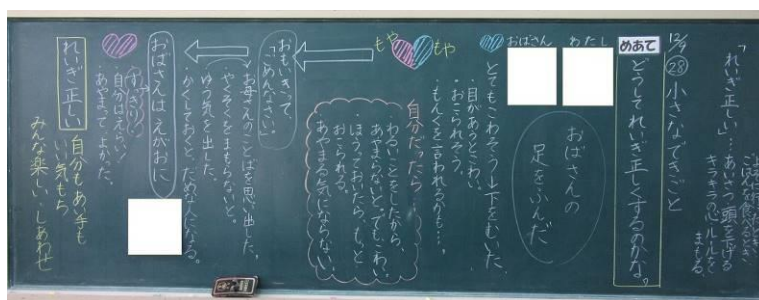 「れいぎ正しい」…あいさつ 頭を下げる
ごはんを食べるとき
キラキラ心 ルールなど
まもる。
12/9
㉘ 小さなできごと
めあて
どうしてれいぎ正しくするのかな。
わたし
おばさん
おばさんの
足をふんだ
とてもこわそう→下をむいた
・目があうとこわい。
・おこられそう。
・もんくを言われるかも…。
自分だったら
わるいことをしたから、
あやまらないと。でもこわい。
・ほうっておいたら、もっと
おこられる。
あやまる気にならない。
もや
もや
おもいきって、
「ごめんなさい」
お母さんのことばを思い出した。
やくそくをまもらないと。
ゆう気を出した。
かくしておくと、だめな人になる。
おばさんは えがおに
すっきり!
自分はえらい!
あやまってよかった。
れいぎ正しい
自分もあい手も
いい気もち
みんな楽しい・しあわせ